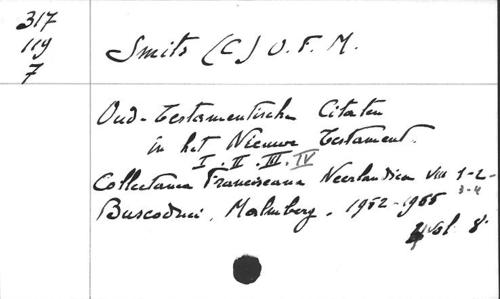 317
119
7
Smits (C) O.F.M.
Oud-Testamentische Citaten
in het Nieuwe Testament.
I. II. III. IV
Collectanea Franciscana Neerlandica VIII 1-2-
3-4
Buscoduci, Malmberg. 1952-1955
4 vol. 8°